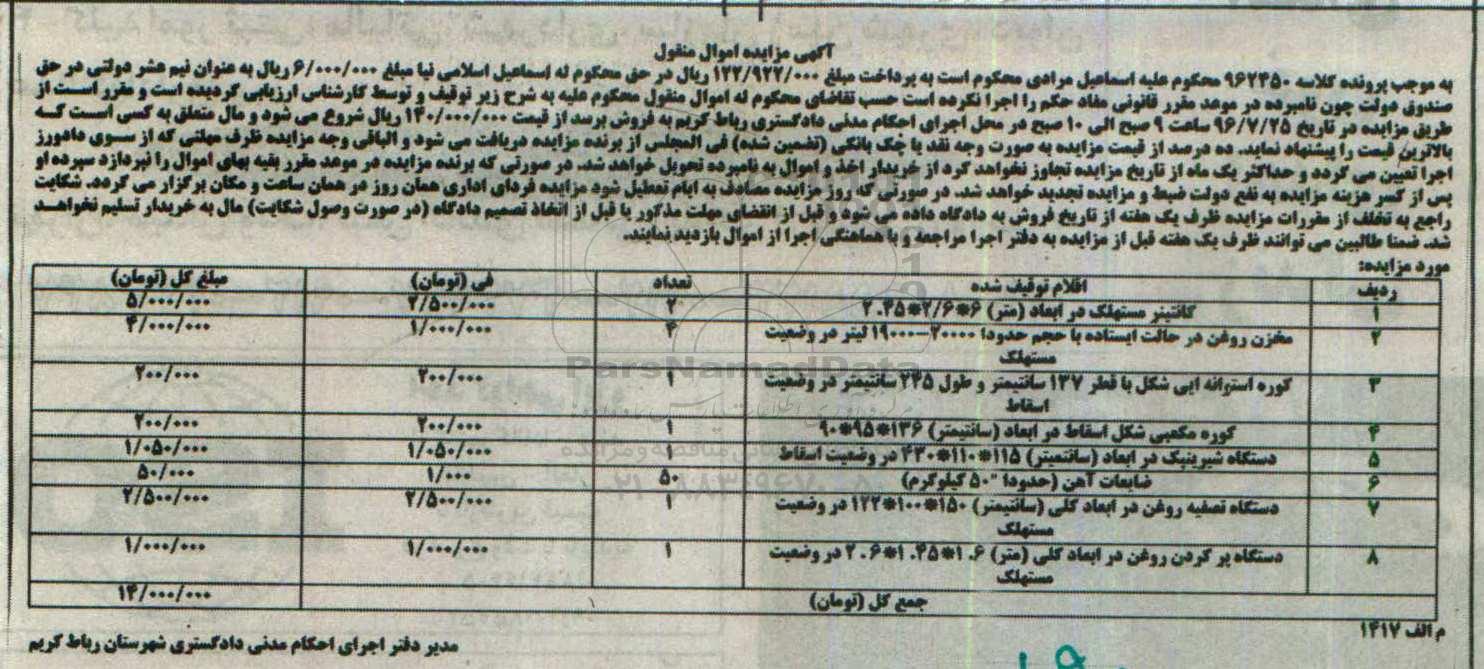 آگهی مزایده اموال منقول
به موجب پرونده کلاسه ۹۶۲۴۵۰ محکوم علیه اسماعیل مرادی محکوم است به پرداخت مبلغ ۱۲۲/۹۲۲/۰۰۰ ریال در حق محکوم له اسماعیل اسلامی نیا مبلغ ۶/۰۰۰/۰۰۰ ریال به عنوان نیم عشر دولتی در حق
صندوق دولت چون نامبرده در موعد مقرر قانونی مفاد حکم را اجرا نکرده است حسب تقاضای محکوم له اموال منقول محکوم علیه به شرح زیر توقیف و توسط کارشناس ارزیابی گردیده است و مقرر است از
طریق مزایده در تاریخ ۹۶/۷/۲۵ ساعت ۹ صبح الی ۱۰ صبح در محل اجرای احکام مدنی دادگستری رباط کریم به فروش برسد از قیمت ۱۴۰/۰۰۰/۰۰۰ ریال شروع می شود و مال متعلق به کسی است که
بالاترین قیمت را پیشنهاد نماید. ده درصد از قیمت مزایده به صورت وجه نقد یا چک بانکی (تضمین شده) فی المجلس از برنده مزایده دریافت می شود و الباقی وجه مزایده ظرف مهلتی که از سوی دادورز
اجرا تعیین می گردد و حداکثر یک ماه از تاریخ مزایده تجاوز نخواهد کرد از خریدار اخذ و اموال به نامبرده تحویل خواهد شد. در صورتی که برنده مزایده در موعد مقرر بقیه بهای اموال را نپردازد سپرده او
پس از کسر هزینه مزایده به نفع دولت ضبط و مزایده تجدید خواهد شد. در صورتی که روز مزایده مصادف به ایام تعطیل شود مزایده فردای اداری همان روز در همان ساعت و مکان برگزار می گردد. شکایت
راجع به تخلف از مقررات مزایده ظرف یک هفته از تاریخ فروش به دادگاه داده می شود و قبل از انقضای مهلت مذکور یا قبل از اتخاذ تصمیم دادگاه (در صورت وصول شکایت) مال به خریدار تسلیم نخواهد
شد. ضمنا طالبین می توانند ظرف یک هفته قبل از مزایده به دفتر اجرا مراجعه و با هماهنگی اجرا از اموال بازدید نمایند.
مورد مزایده:
ردیف اقلام توقیف شده تعداد فی (تومان) مبلغ کل (تومان)
۱ کانتینر مستهلک در ابعاد (متر) ۶*۲/۶*۲.۴۵ ۲ ۲/۵۰۰/۰۰۰ ۵/۰۰۰/۰۰۰
۲ مخزن روغن در حالت ایستاده با حجم حدودا ۲۰۰۰۰-۱۹۰۰۰ لیتر در وضعیت ۴ ۱/۰۰۰/۰۰۰ ۴/۰۰۰/۰۰۰
مستهلک
۳ کوره استوانه ایی شکل با قطر ۱۳۷ سانتیمتر و طول ۲۴۵ سانتیمتر در وضعیت ۱ ۲۰۰/۰۰۰ ۲۰۰/۰۰۰
اسقاط
۴ کوره مکعبی شکل اسقاط در ابعاد (سانتیمتر) ۱۳۶*۹۵*۹۰ ۱ ۲۰۰/۰۰۰ ۲۰۰/۰۰۰
۵ دستگاه شیرینیک در ابعاد (سانتیمتر) ۱۱۵*۱۱۰*۴۳۰ در وضعیت اسقاط ۱ ۱/۰۵۰/۰۰۰ ۱/۰۵۰/۰۰۰
۶ ضایعات آهن (حدودا ۵۰ کیلوگرم) ۵۰ ۱/۰۰۰ ۵۰/۰۰۰
۷ دستگاه تصفیه روغن در ابعاد کلی (سانتیمتر) ۱۵۰*۱۰۰*۱۲۲ در وضعیت ۱ ۲/۵۰۰/۰۰۰ ۲/۵۰۰/۰۰۰
مستهلک
۸ دستگاه پر کردن روغن در ابعاد کلی (متر) ۱.۶*۱.۴۵*۲.۶ در وضعیت ۱ ۱/۰۰۰/۰۰۰ ۱/۰۰۰/۰۰۰
مستهلک
جمع کل (تومان) ۱۴/۰۰۰/۰۰۰
م الف ۱۴۱۷
مدیر دفتر اجرای احکام مدنی دادگستری شهرستان رباط کریم
ParsNamadData